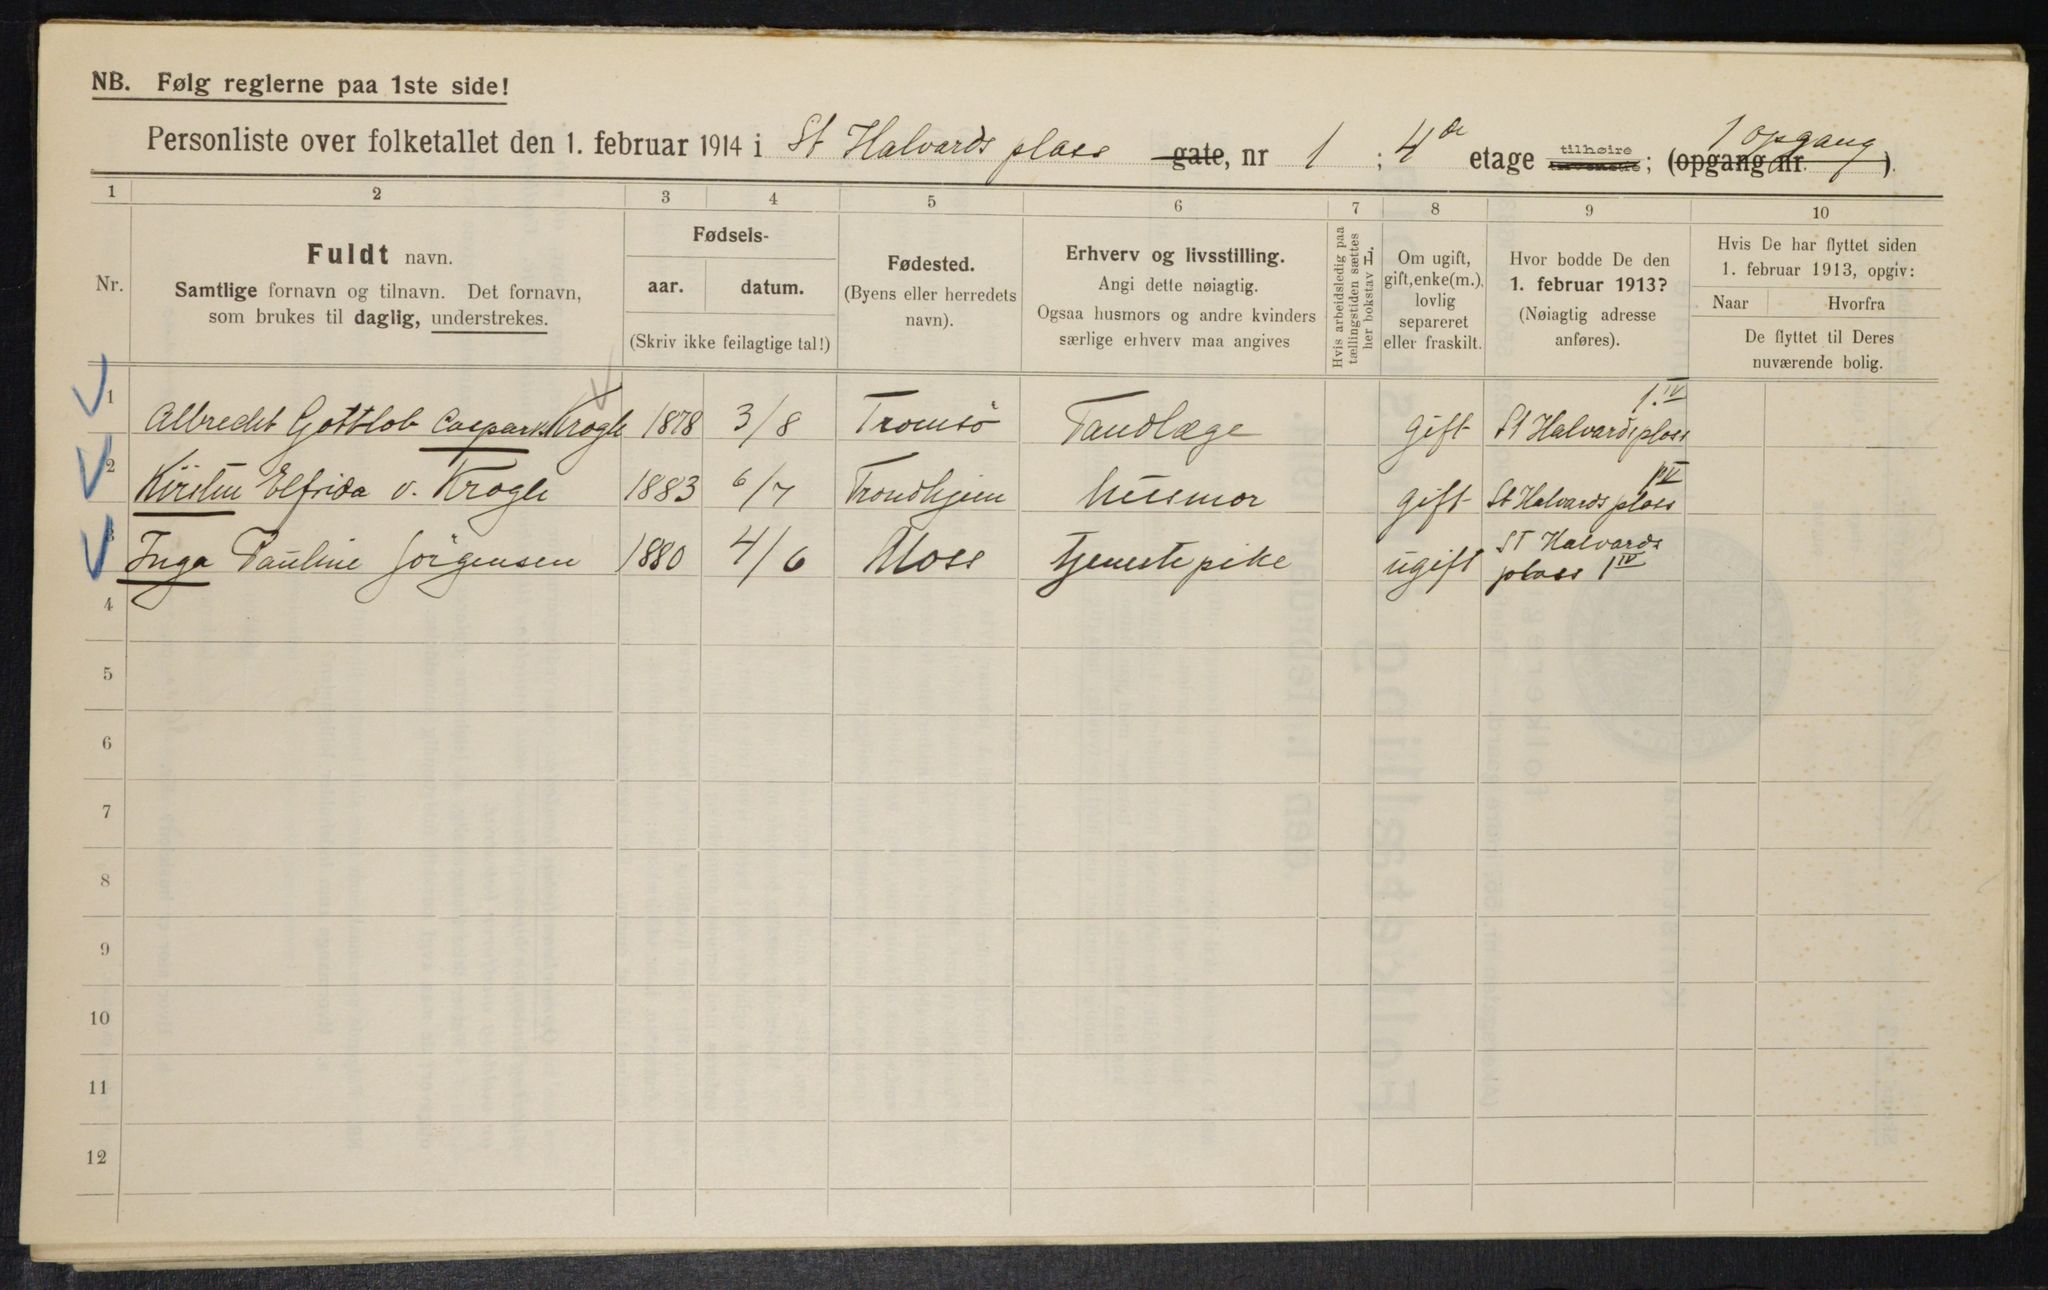 NB. Følg reglerne paa 1ste side!
Personliste over folketallet den 1. februar 1914 i St Halvards plass gate, nr 1 ; 4de etage tilhøire tilvenstre; (opgang nr. ). 1 opgang
1 2 3 4 5 6 7 8 9 10
Nr.
Fuldt navn.
Samtlige fornavn og tilnavn. Det fornavn,
som brukes til daglig, understrekes.
Fødsels-
aar. datum.
(Skriv ikke feilagtige tal!)
Fødested.
(Byens eller herredets
navn).
Erhverv og livsstilling.
Angi dette nøiagtig.
Ogsaa husmors og andre kvinders
særlige erhverv maa angives
Hvis arbeidsledig paa
tællingstiden sættes
her bokstav L.
Om ugift,
gift, enke(m.),
lovlig
separeret
eller fraskilt.
Hvor bodde De den
1. februar 1913?
(Nøiagtig adresse
anføres).
Hvis De har flyttet siden
1. februar 1913, opgiv:
Naar Hvorfra
De flyttet til Deres
nuværende bolig.
1 Albrecht Gottlob Caspar v. Krogh 1878 3/8 Tromsö Tandlæge gift St Halvardsplass 1.IV
2 Kirsten Elfrida v. Krogh 1883 6/7 Trondhjem husmor gift St Halvards plass 1 IV
3 Inga Pauline Jörgensen 1880 4/6 Moss tjenestepike ugift St Halvards
plass 1 IV
4
5
6
7
8
9
10
11
12